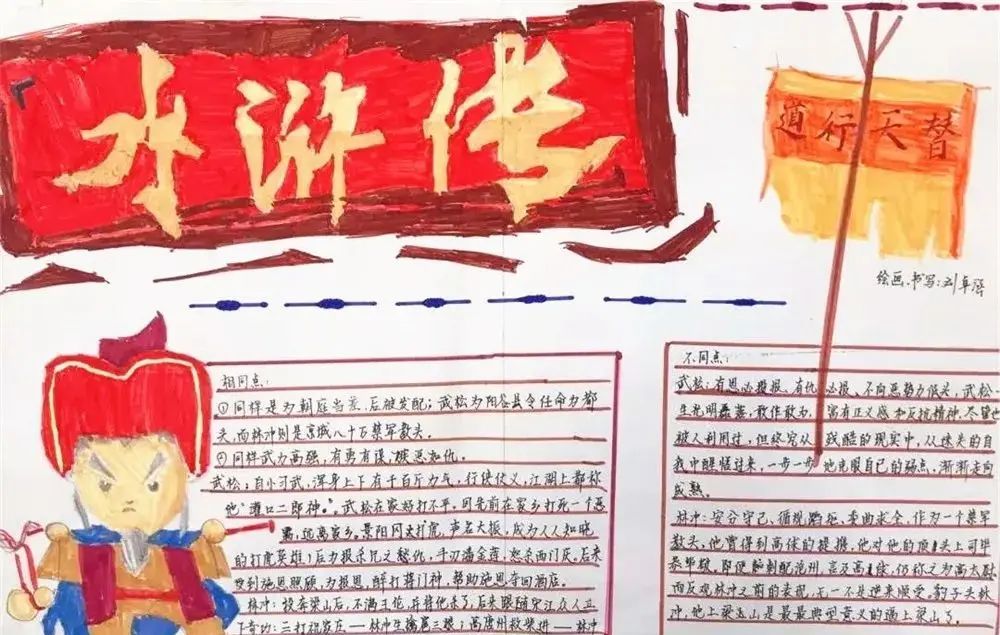 水浒传
替天行道
绘画、书写:刘卓
相同点:
①同样是为朝庭当差,后被发配;武松为阳谷县令任命为都
头,而林冲则是京城八十万禁军教头。
②同样武力高强,有勇有谋,嫉恶如仇。
武松:自小习武,浑身上下有千百斤力气,行侠仗义,江湖上都称
他"灌口二郎神"。武松在家好打不平,因先前在家乡打死一个恶
霸,远离家乡。景阳冈打虎,声名大振,成为人人知晓
的打虎英雄;后为报杀兄之仇,手刃潘金莲,怒杀西门庆;后来
受到施恩照顾,为报恩,醉打蒋门神,帮助施恩夺回酒店。
林冲:投奔梁山后,不满王伦,并将他杀了,后来跟随宋江众人立
下奇功:三打祝家庄——林冲生擒扈三娘;高唐州救柴进——林冲
不同点:
武松:有恩必报,有仇必报,不向恶势力低头,武松
生光明磊落,敢作敢为,富有正义感和反抗精神,尽管也
被人利用过,但终究从残酷的现实中,从迷失的自
我中醒悟过来,一步一步地克服自己的弱点,渐渐走向
成熟。
林冲:安分守己,循规蹈矩,委曲求全,作为一个禁军
教头,他曾得到高俅的提携,他对他的顶头上司毕
恭毕敬,即使被刺配沧州,言及高俅,仍称之为高太尉
而反观林冲之前的表现,无一不是逆来顺受,豹子头林
冲,他上梁山是最最典型意义的逼上梁山了。